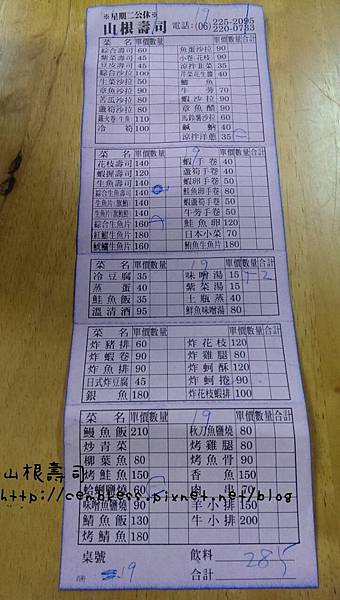 ※星期二公休※ 19
山根壽司 電話:(06) 225-2095
220-0733
菜名 單價 數量 菜名 單價 數量 合計
綜合壽司 60 魚蛋沙拉 90
紫菜壽司 50 小卷·花枝 90
豆皮壽司 45 涼拌韭菜 35
綜合沙拉 100 洋菜花生醬 40
生菜沙拉 50 鯽魚
章魚沙拉 90 牛蒡 70
苦瓜沙拉 80 蝦沙拉 90
蘆筍沙拉 80 章魚醋 90
鐵火卷·生魚 110 馬鈴薯沙拉 60
冷筍 100 鹹蜊 40
涼拌洋蔥 35
菜名 單價 數量 9 單價 數量 合計
花枝壽司 140 蝦手卷 40
蝦握壽司 120 蘆筍手卷 40
生魚壽司 140 蝦卵手卷 50
綜合生魚壽司 140 鮭卵手卷 80
生魚片(旗魚) 140 蝦蘆筍手卷 50
生魚片(旗魚鮭) 140 牛蒡手卷 50
綜合生魚片 160 鮭魚卵 120
紅魽生魚片 180 日本小菜 70
魷鱸生魚片 160 鮪魚生魚片 180
菜名 單價 數量 19 單價 數量 合計
冷豆腐 35 味噌湯 15 2
蒸蛋 40 紫菜湯 15
鮭魚飯 35 土瓶蒸 40
溫清酒 95 鮮魚味噌湯 80
菜名 單價 數量 單價 數量 合計
炸豬排 60 炸花枝 120
炸蝦卷 90 炸雞腿 80
炸魚排 90 炸蚵酥 120
日式炸豆腐 45 炸蚵捲 90
銀魚 180 炸花枝蝦排 100
菜名 單價 數量 19 單價 數量 合計
鰻魚飯 210 秋刀魚鹽燒 80
炒青菜 烤雞腿 80
柳葉魚 80 烤魚骨 90
烤鮭魚 150 香魚 150
蛤蜊鹽燒 60 肉串 70
味噌魚鹽燒 90 羊小排 150
鯖魚飯 130 牛小排 200
烤鯖魚 180
桌號 飲料
19 合計 285
山根壽司
http://cenbless.pixnet.net/blog